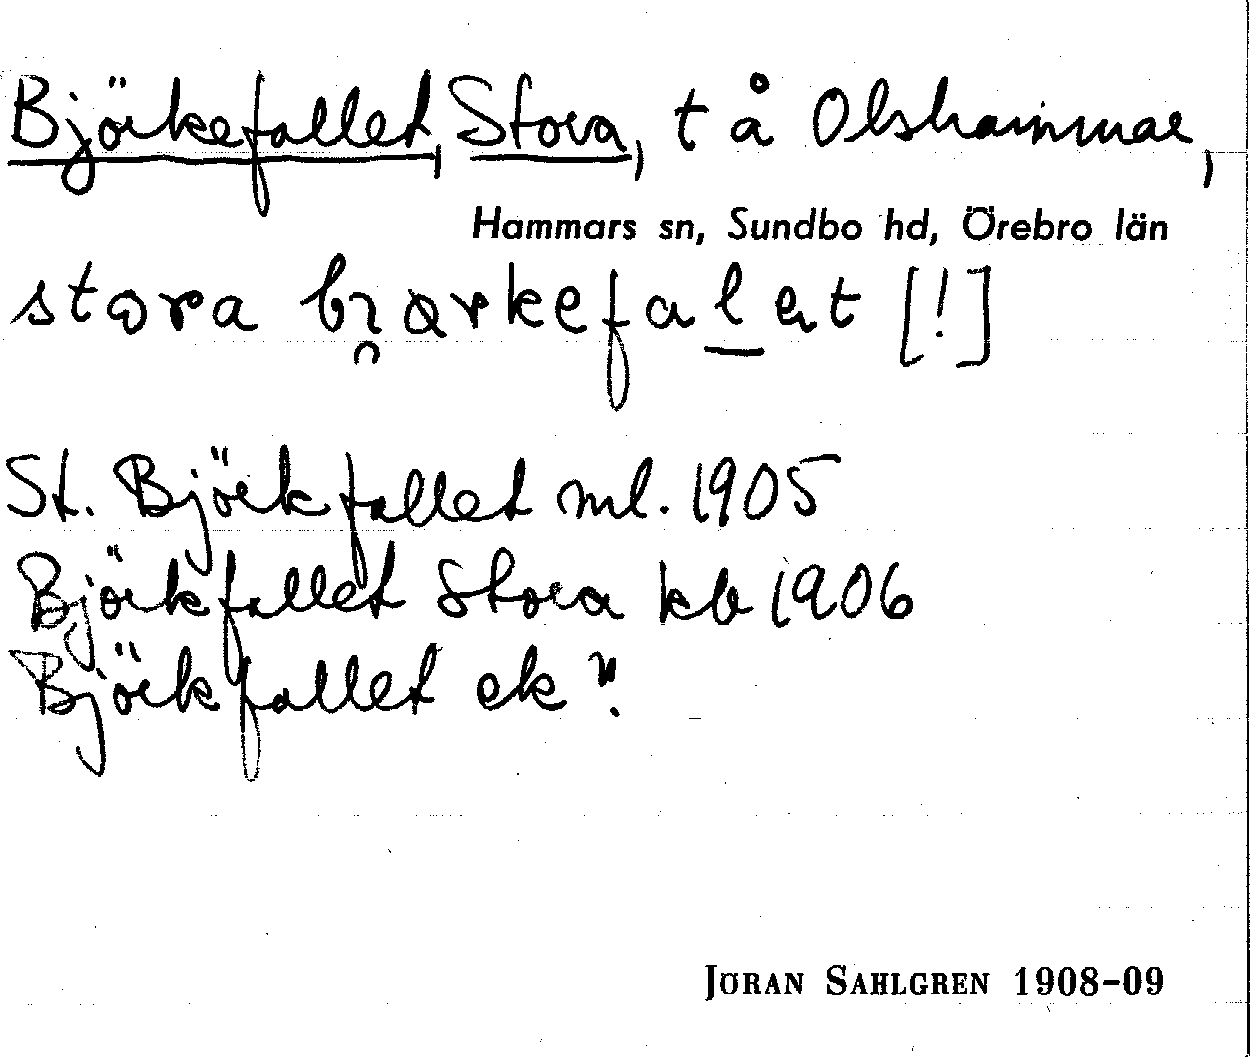 Björkefallet, Stora, t å Olshammar,
Hammars sn, Sundbo hd, Örebro län
[!]
St. Björkfallet ml. 1905
Björkfallet Stora kb 1906
Björkfallet ek ".
JÖRAN SAHLGREN 1908–09